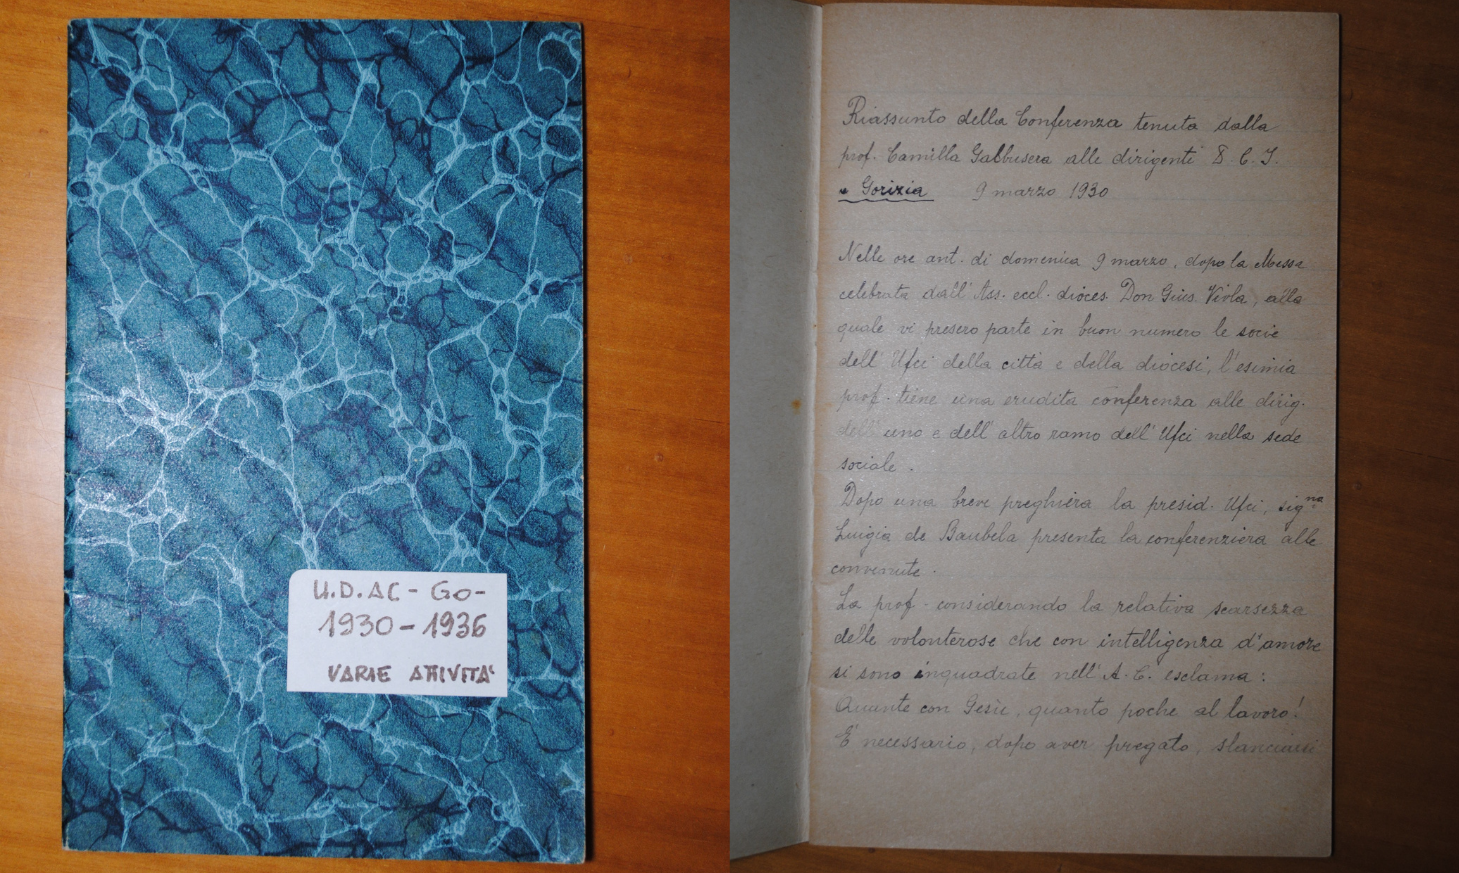 U.D.AC - GO-
1930-1936
VARIE ATTIVITA'
Riassunto della Conferenza tenuta dalla
prof. Camilla Gabbusera alle dirigenti D. C. I.
Gorizia 9 marzo 1930
Nelle ore ant. di domenica 9 marzo, dopo la Messa
celebrata dall'Ass. eccl. dioces. Don Gius. Viola, alla
quale vi presero parte in buon numero le socie
dell'Ufci della città e della diocesi, l'esimia
prof. tiene una erudita conferenza alle dirig.
dell'uno e dell'altro ramo dell'Ufci nella sede
sociale.
Dopo una breve preghiera la presid. Ufci, sig.na
Luigia de Baubela presenta la conferenziera alle
convenute.
La prof. considerando la relativa scarsezza
delle volonterose che con intelligenza d'amore
si sono inquadrate nell'A. C. esclama:
Quante con Gesù, quanto poche al lavoro!
E' necessario, dopo aver pregato, slanciarsi